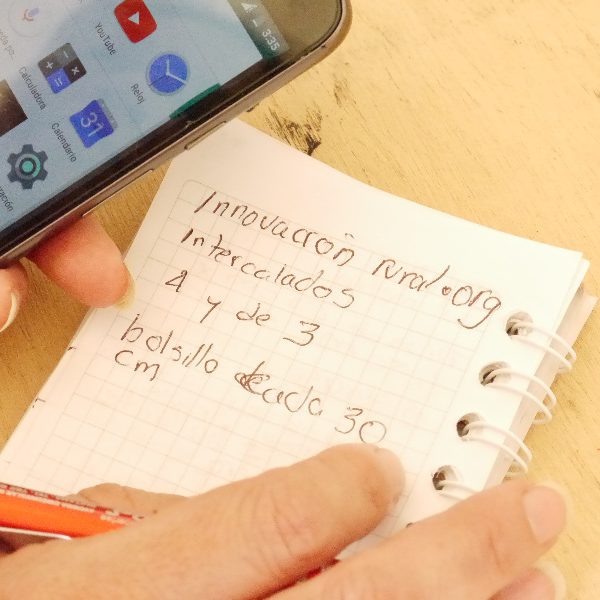 3:35
YouTube
Reloj
Calculadora
31
Calendario
Innovación rural.org
Intercalados
4 y de 3
bolsillo de cada 30
cm